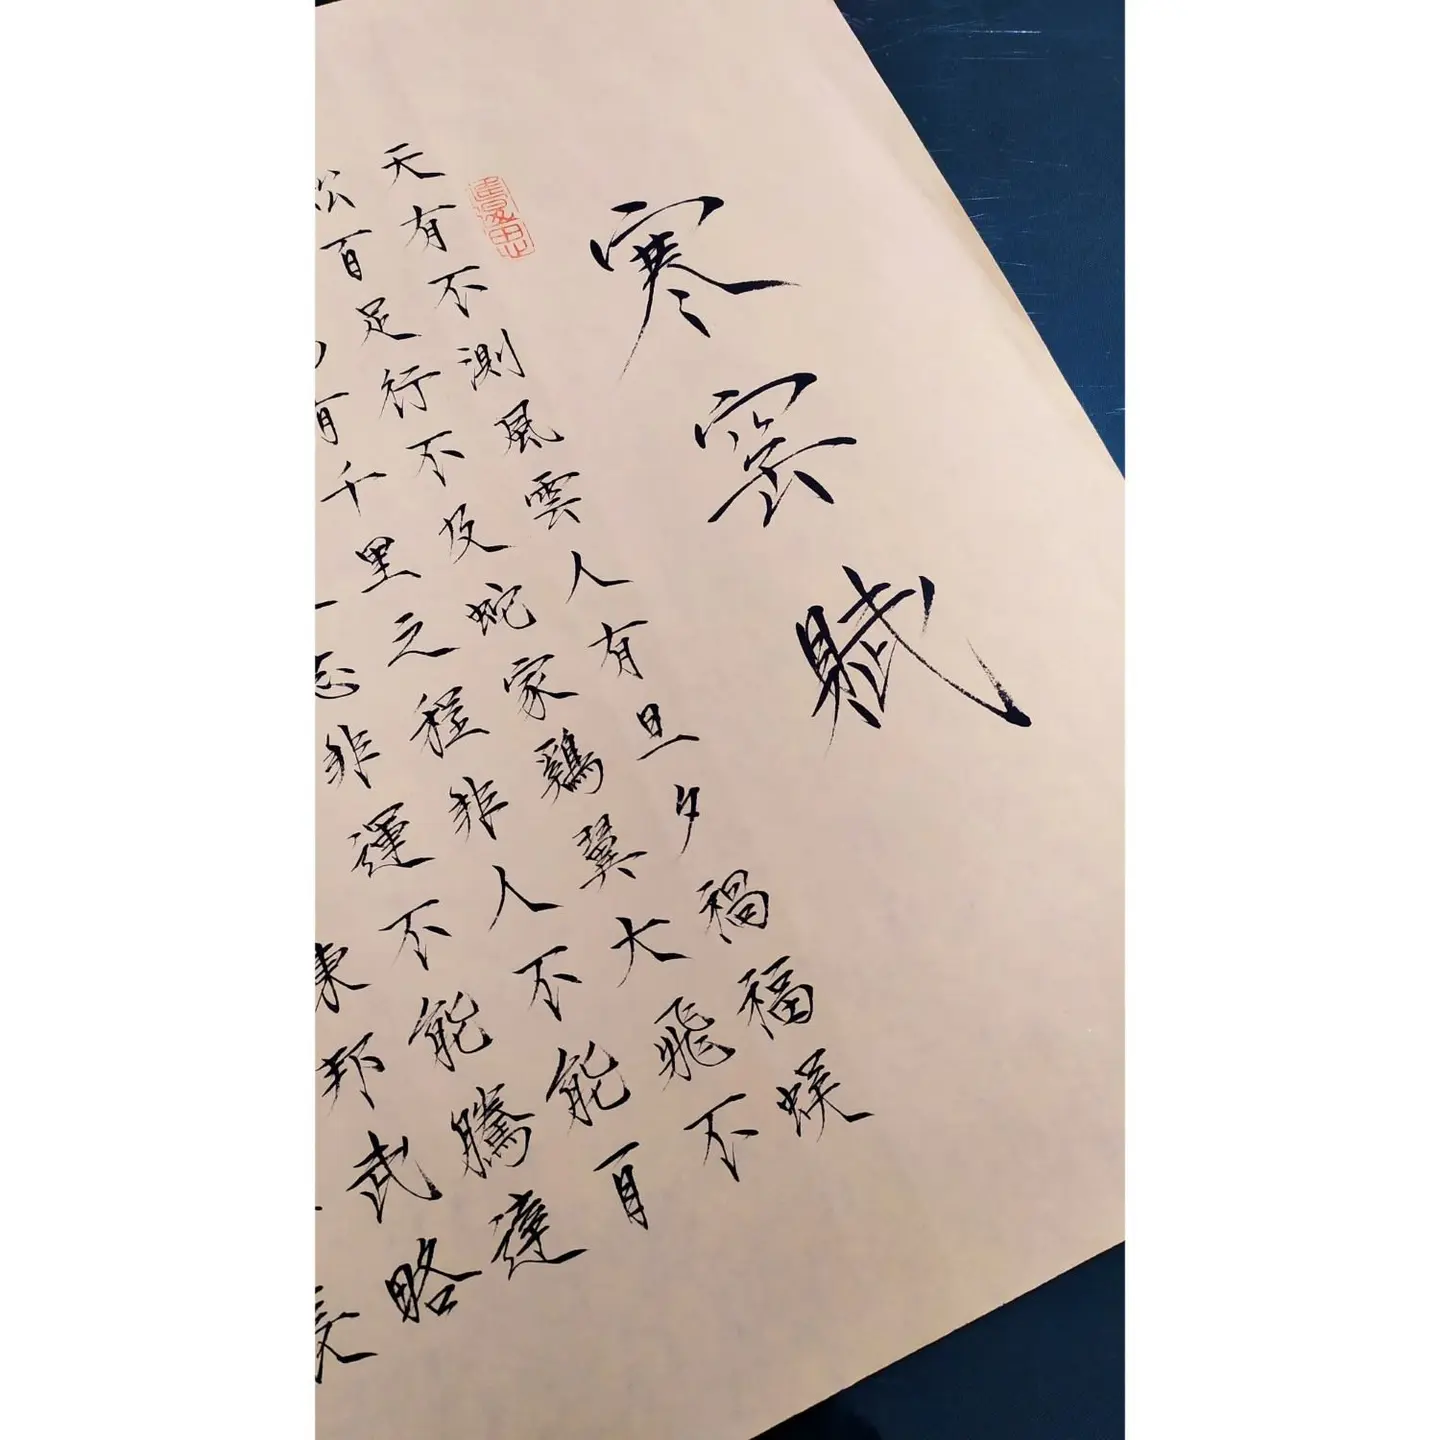 寒窑賦
天有不測風雲人有旦夕禍福蜈
蚣百足行不及蛇家鷄翼大飛不
有千里之程非人不能自
志非運不能騰達
陳邦武略